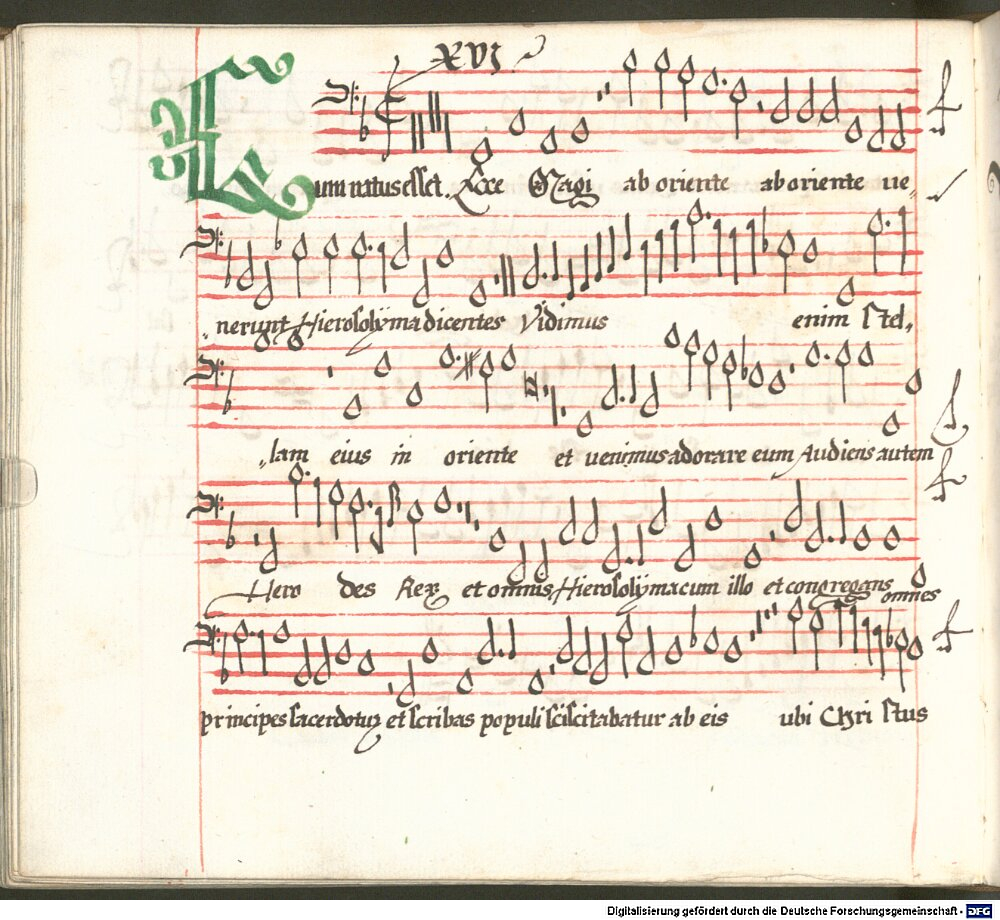 XVI
Cum natus esset. Ecce Magi ab oriente ab oriente ue-
nerunt Hierosolÿma dicentes Vidimus enim stel,,
,,lam eius in oriente et uenimus adorare eum Audiens autem
Hero des Rex et omnis Hierosolÿma cum illo et congregans omnes
principes sacerdotuʒ et scribas populi sciscitabatur ab eis ubi Chri stus
Digitalisierung gefördert durch die Deutsche Forschungsgemeinschaft - DFG